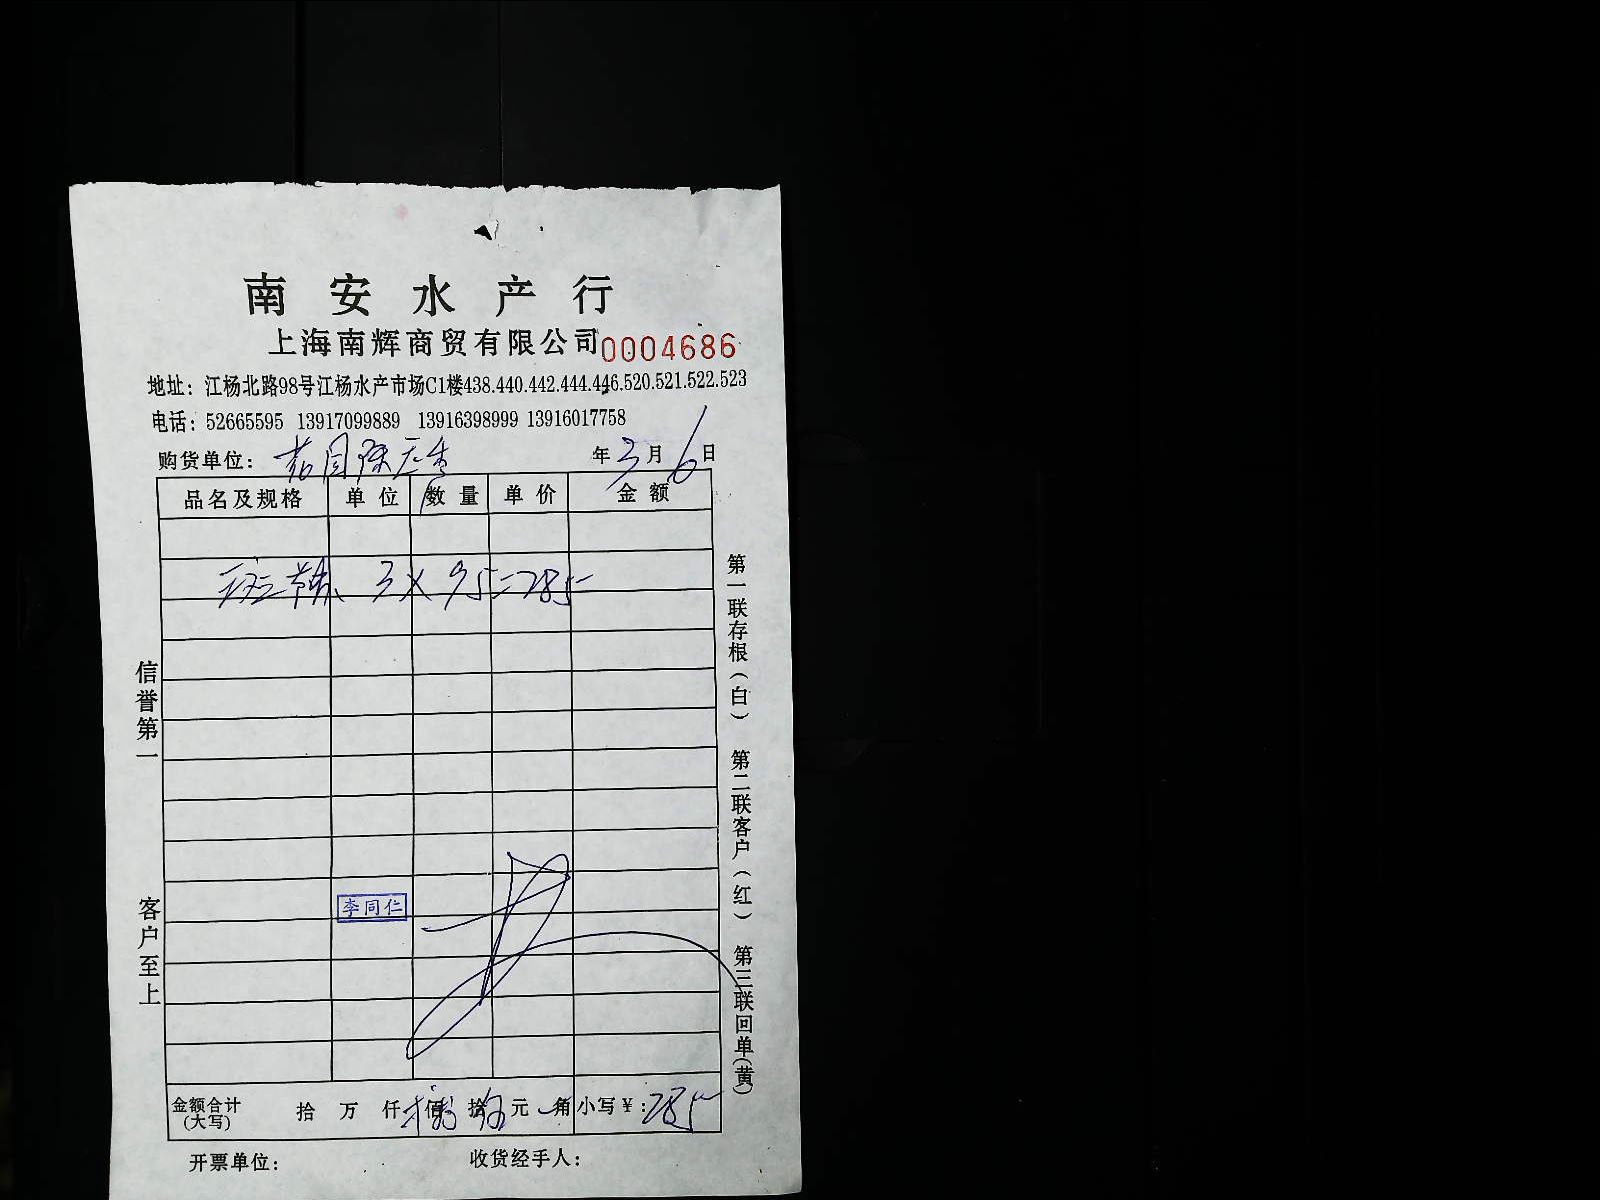 南安水产行
上海南辉商贸有限公司 0004686
地址：江杨北路98号江杨水产市场C1楼438.440.442.444.446.520.521.522.523
电话：52665595 13917099889 13916398999 13916017758
购货单位： 年3月6日
品名及规格 单位 数量 单价 金额
3× 95=285
李同仁
金额合计 拾 万 仟 佰 拾 元 角 小写￥：285
(大写)
开票单位： 收货经手人：
信誉第一 客户至上
第一联存根（白） 第二联客户（红） 第三联回单（黄）